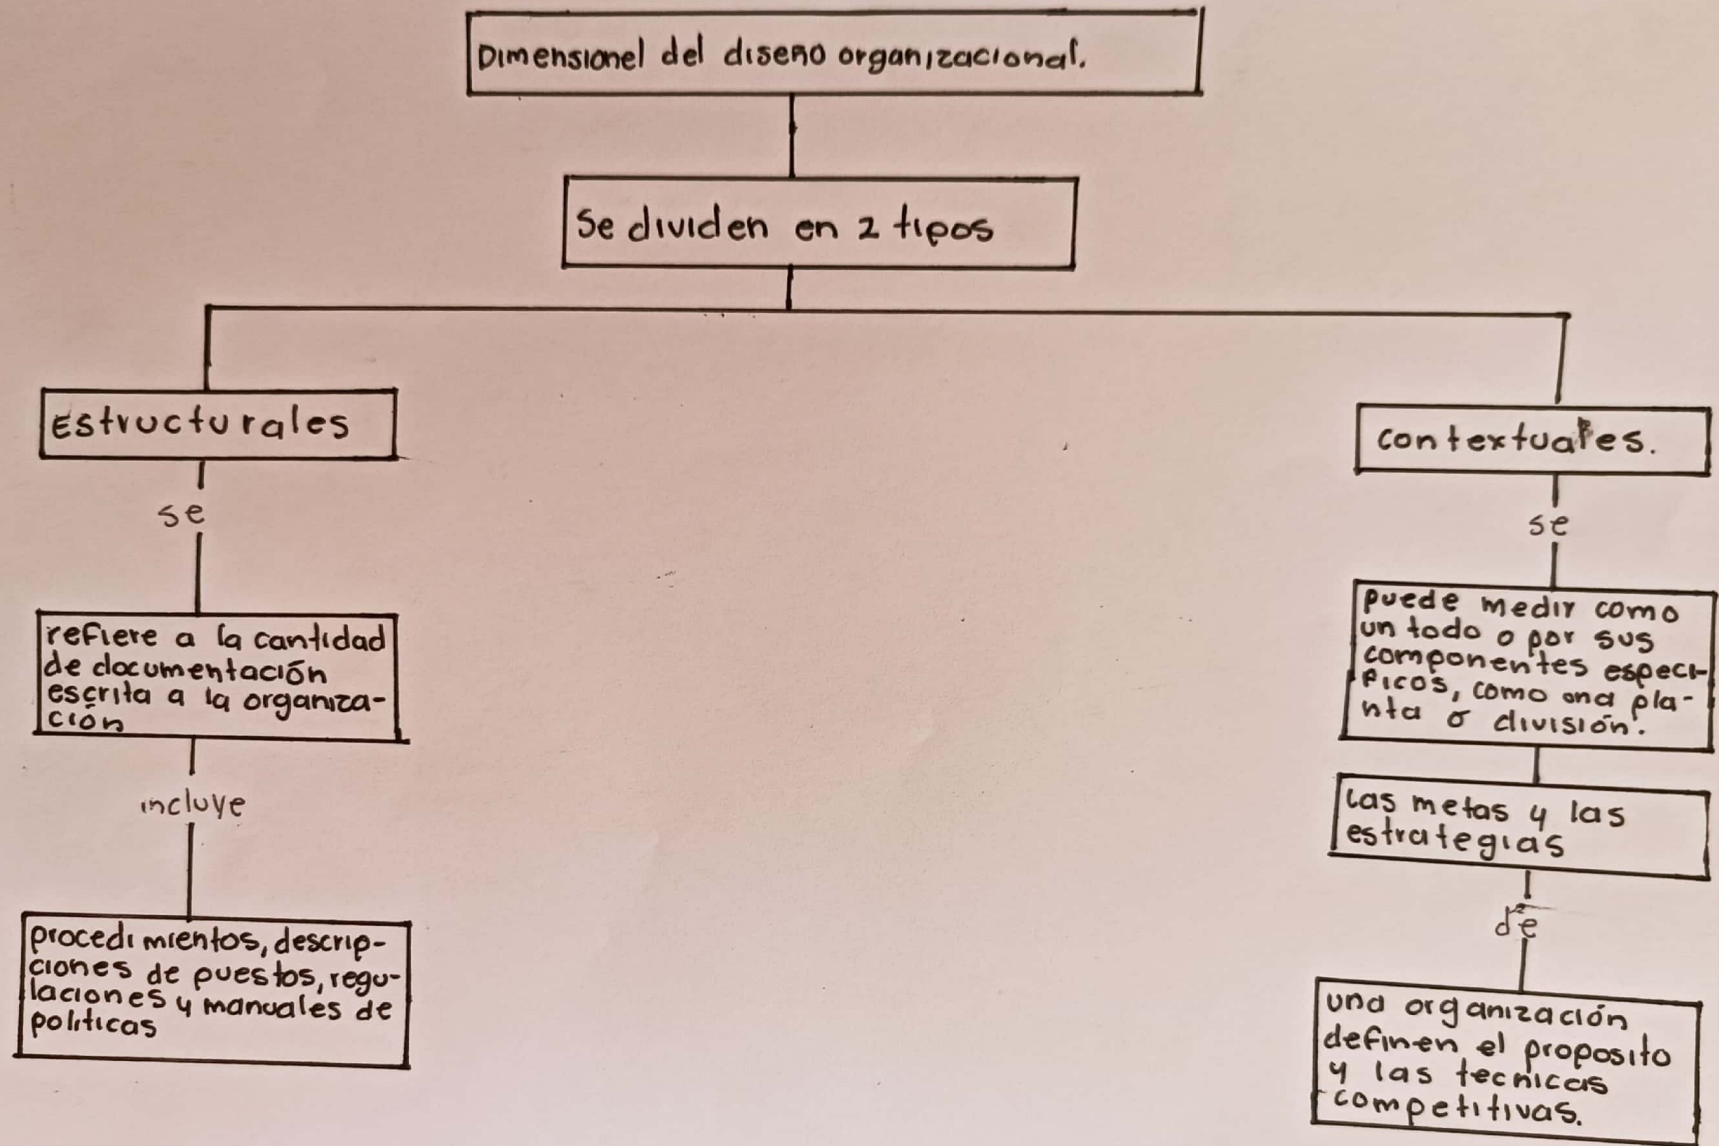 Dimensionel del diseño organizacional.
Se dividen en 2 tipos
Estructurales
se
refiere a la cantidad
de documentación
escrita a la organiza-
ción
incluye
procedimientos, descrip-
ciones de puestos, regu-
laciones y manuales de
politicas
contextuales.
se
puede medir como
un todo o por sus
componentes especi-
ficos, como una pla-
nta o división.
Las metas y las
estrategias
de
una organización
definen el proposito
y las tecnicas
competitivas.